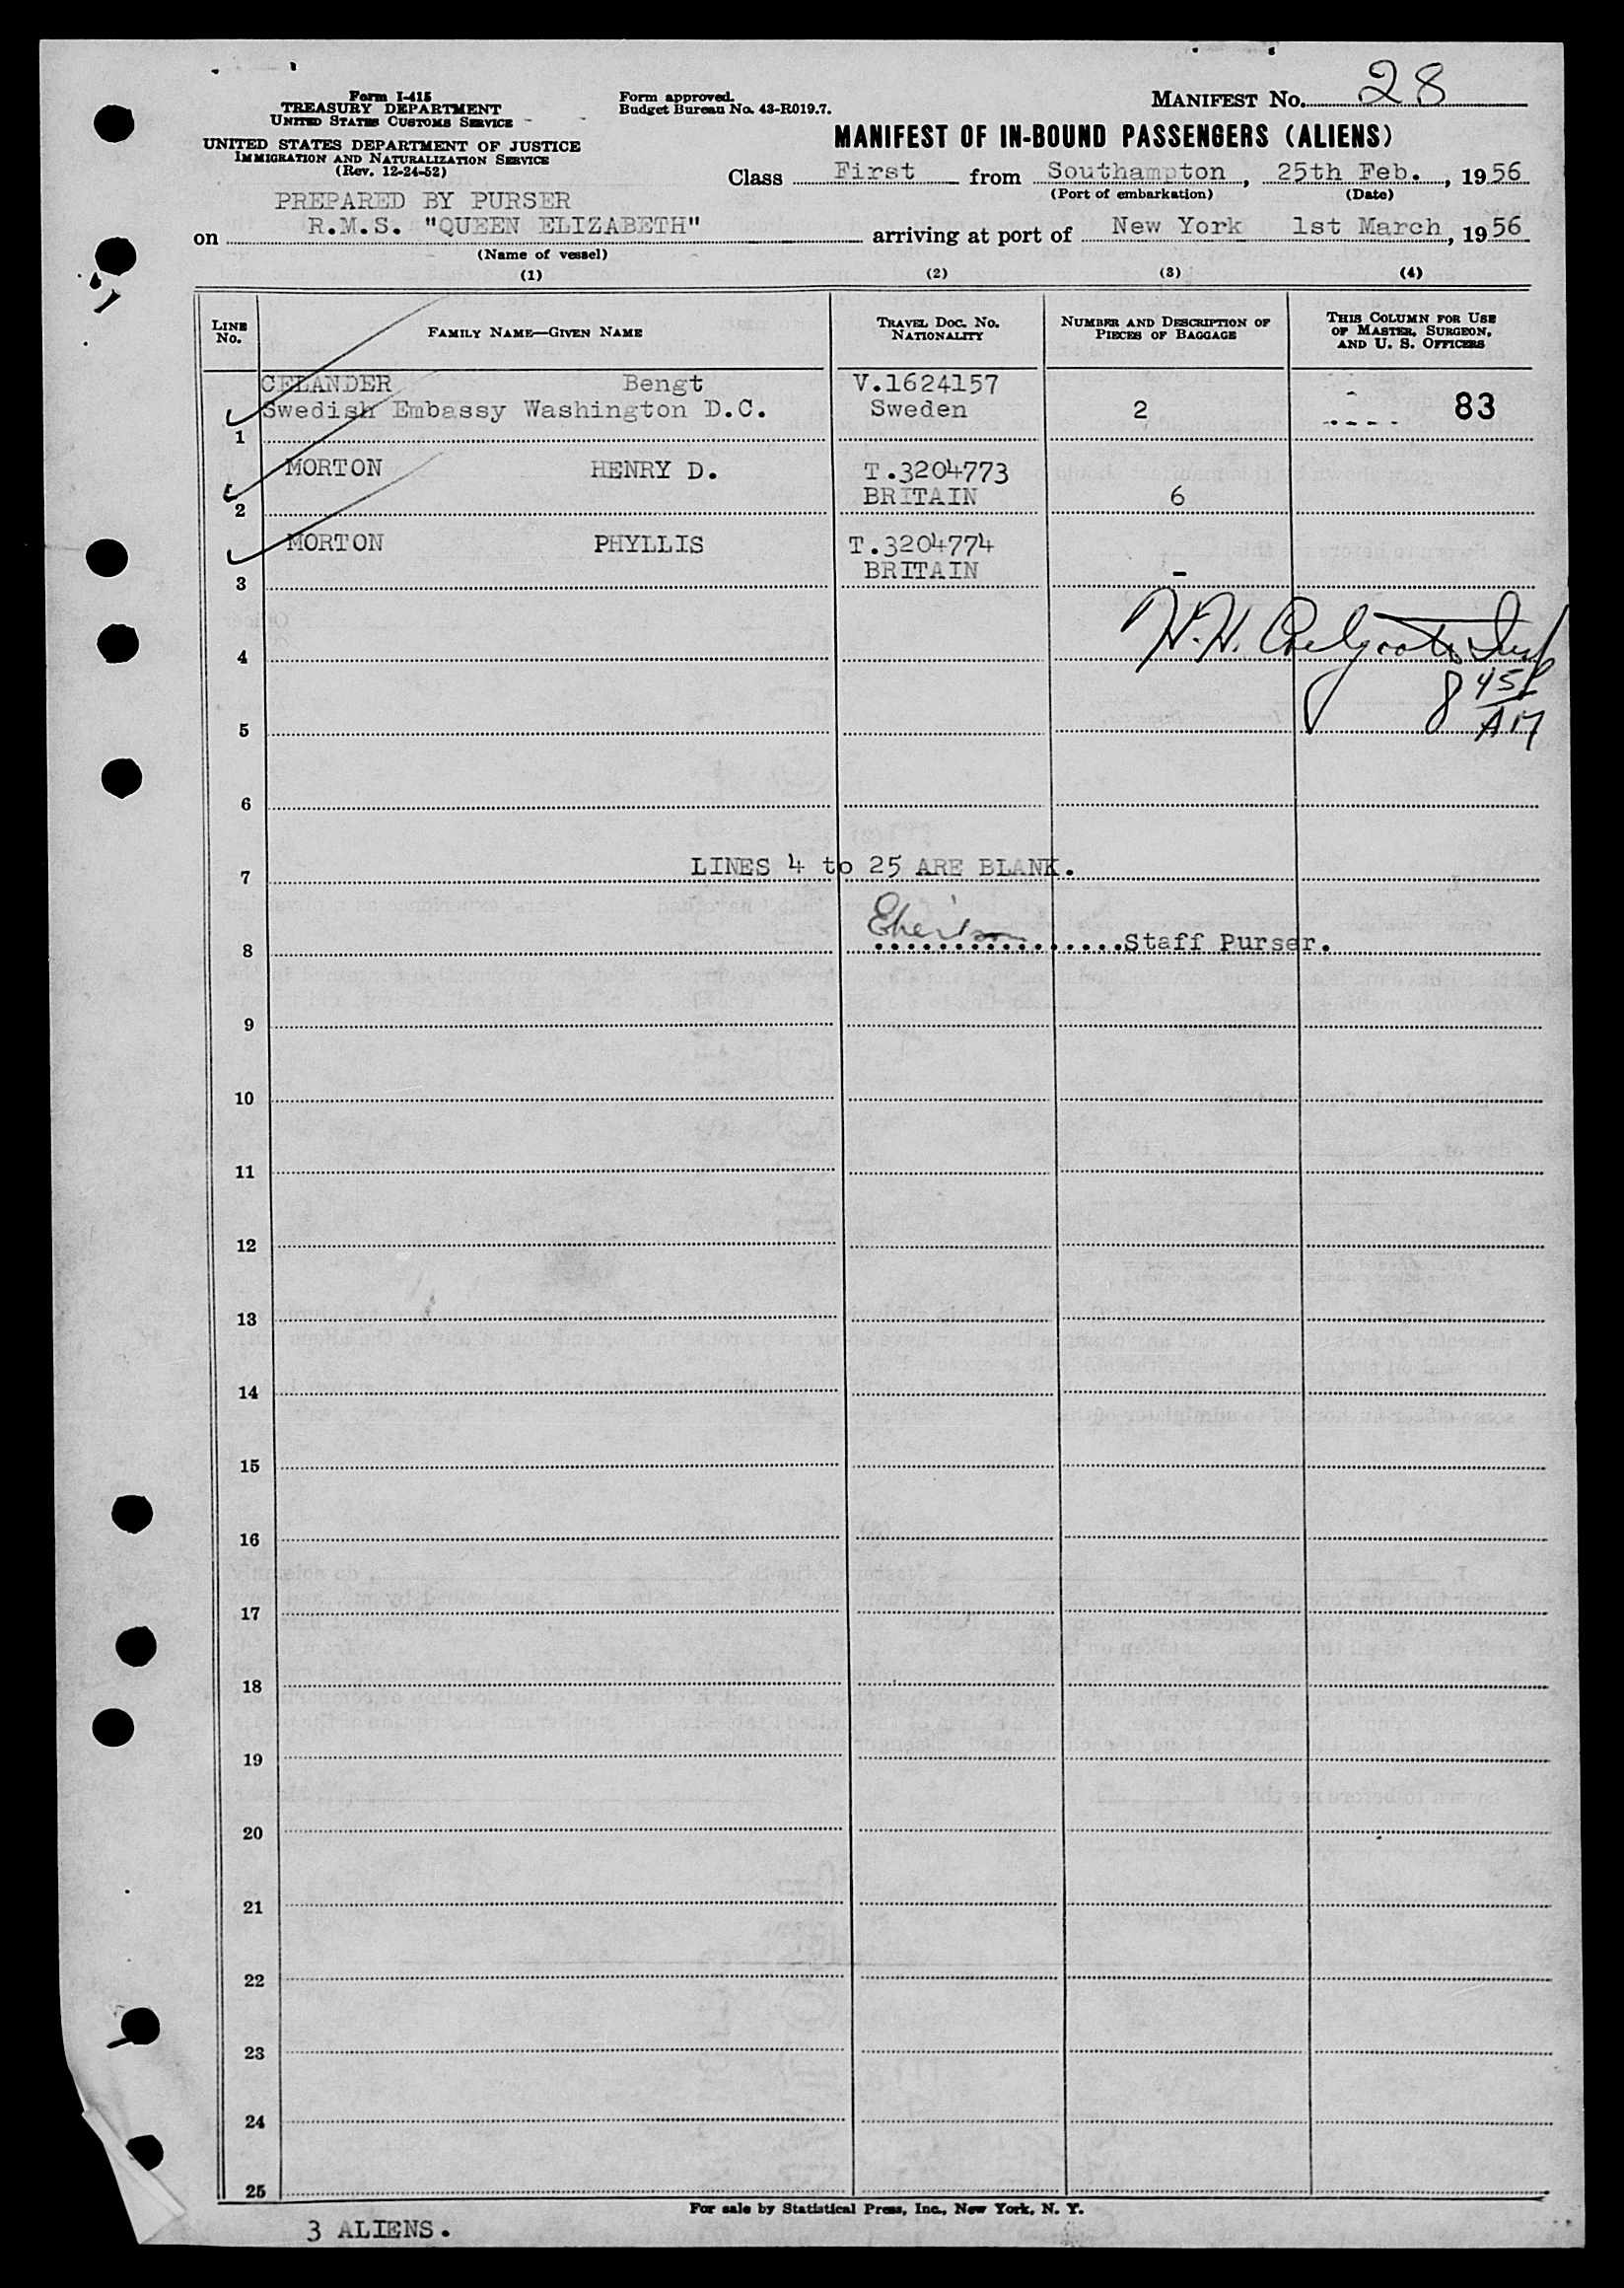 Form I-415
TREASURY DEPARTMENT
UNITED STATES CUSTOMS SERVICE
UNITED STATES DEPARTMENT OF JUSTICE
IMMIGRATION AND NATURALIZATION SERVICE
(Rev. 12-24-52)
Form approved.
Budget Bureau No. 43-R019.7.
MANIFEST NO. 28
MANIFEST OF IN-BOUND PASSENGERS (ALIENS)
Class First from Southampton, 25th Feb., 1956
(Port of embarkation) (Date)
PREPARED BY PURSER
on R.M.S. "QUEEN ELIZABETH" arriving at port of New York 1st March, 1956
(Name of vessel)
(1) (2) (3) (4)
LINE NO. FAMILY NAME—GIVEN NAME TRAVEL DOC. NO. NATIONALITY NUMBER AND DESCRIPTION OF PIECES OF BAGGAGE THIS COLUMN FOR USE OF MASTER, SURGEON, AND U. S. OFFICERS
CELANDER Bengt V.1624157
Swedish Embassy Washington D.C. Sweden 2 83
1
MORTON HENRY D. T.3204773
BRITAIN 6
2
MORTON PHYLLIS T.3204774
BRITAIN -
3
H.H.
4
8 45
AM
5
6
LINES 4 to 25 ARE BLANK.
7
Staff Purser.
8
9
10
11
12
13
14
15
16
17
18
19
20
21
22
23
24
25
For sale by Statistical Press, Inc., New York, N. Y.
3 ALIENS.